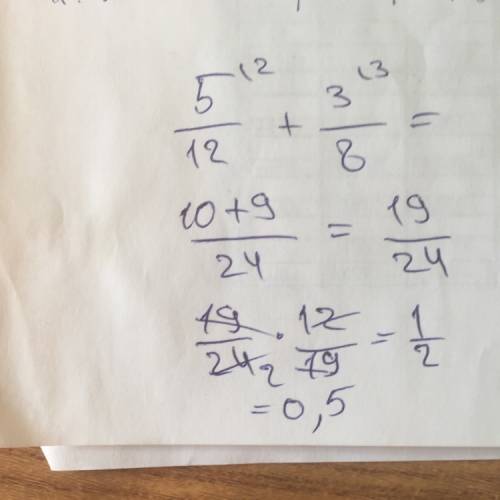 5/12 ⁽² + 3/8 ⁽³ =
10+9/24 = 19/24
19/24 2 · 12/19 = 1/2
= 0,5